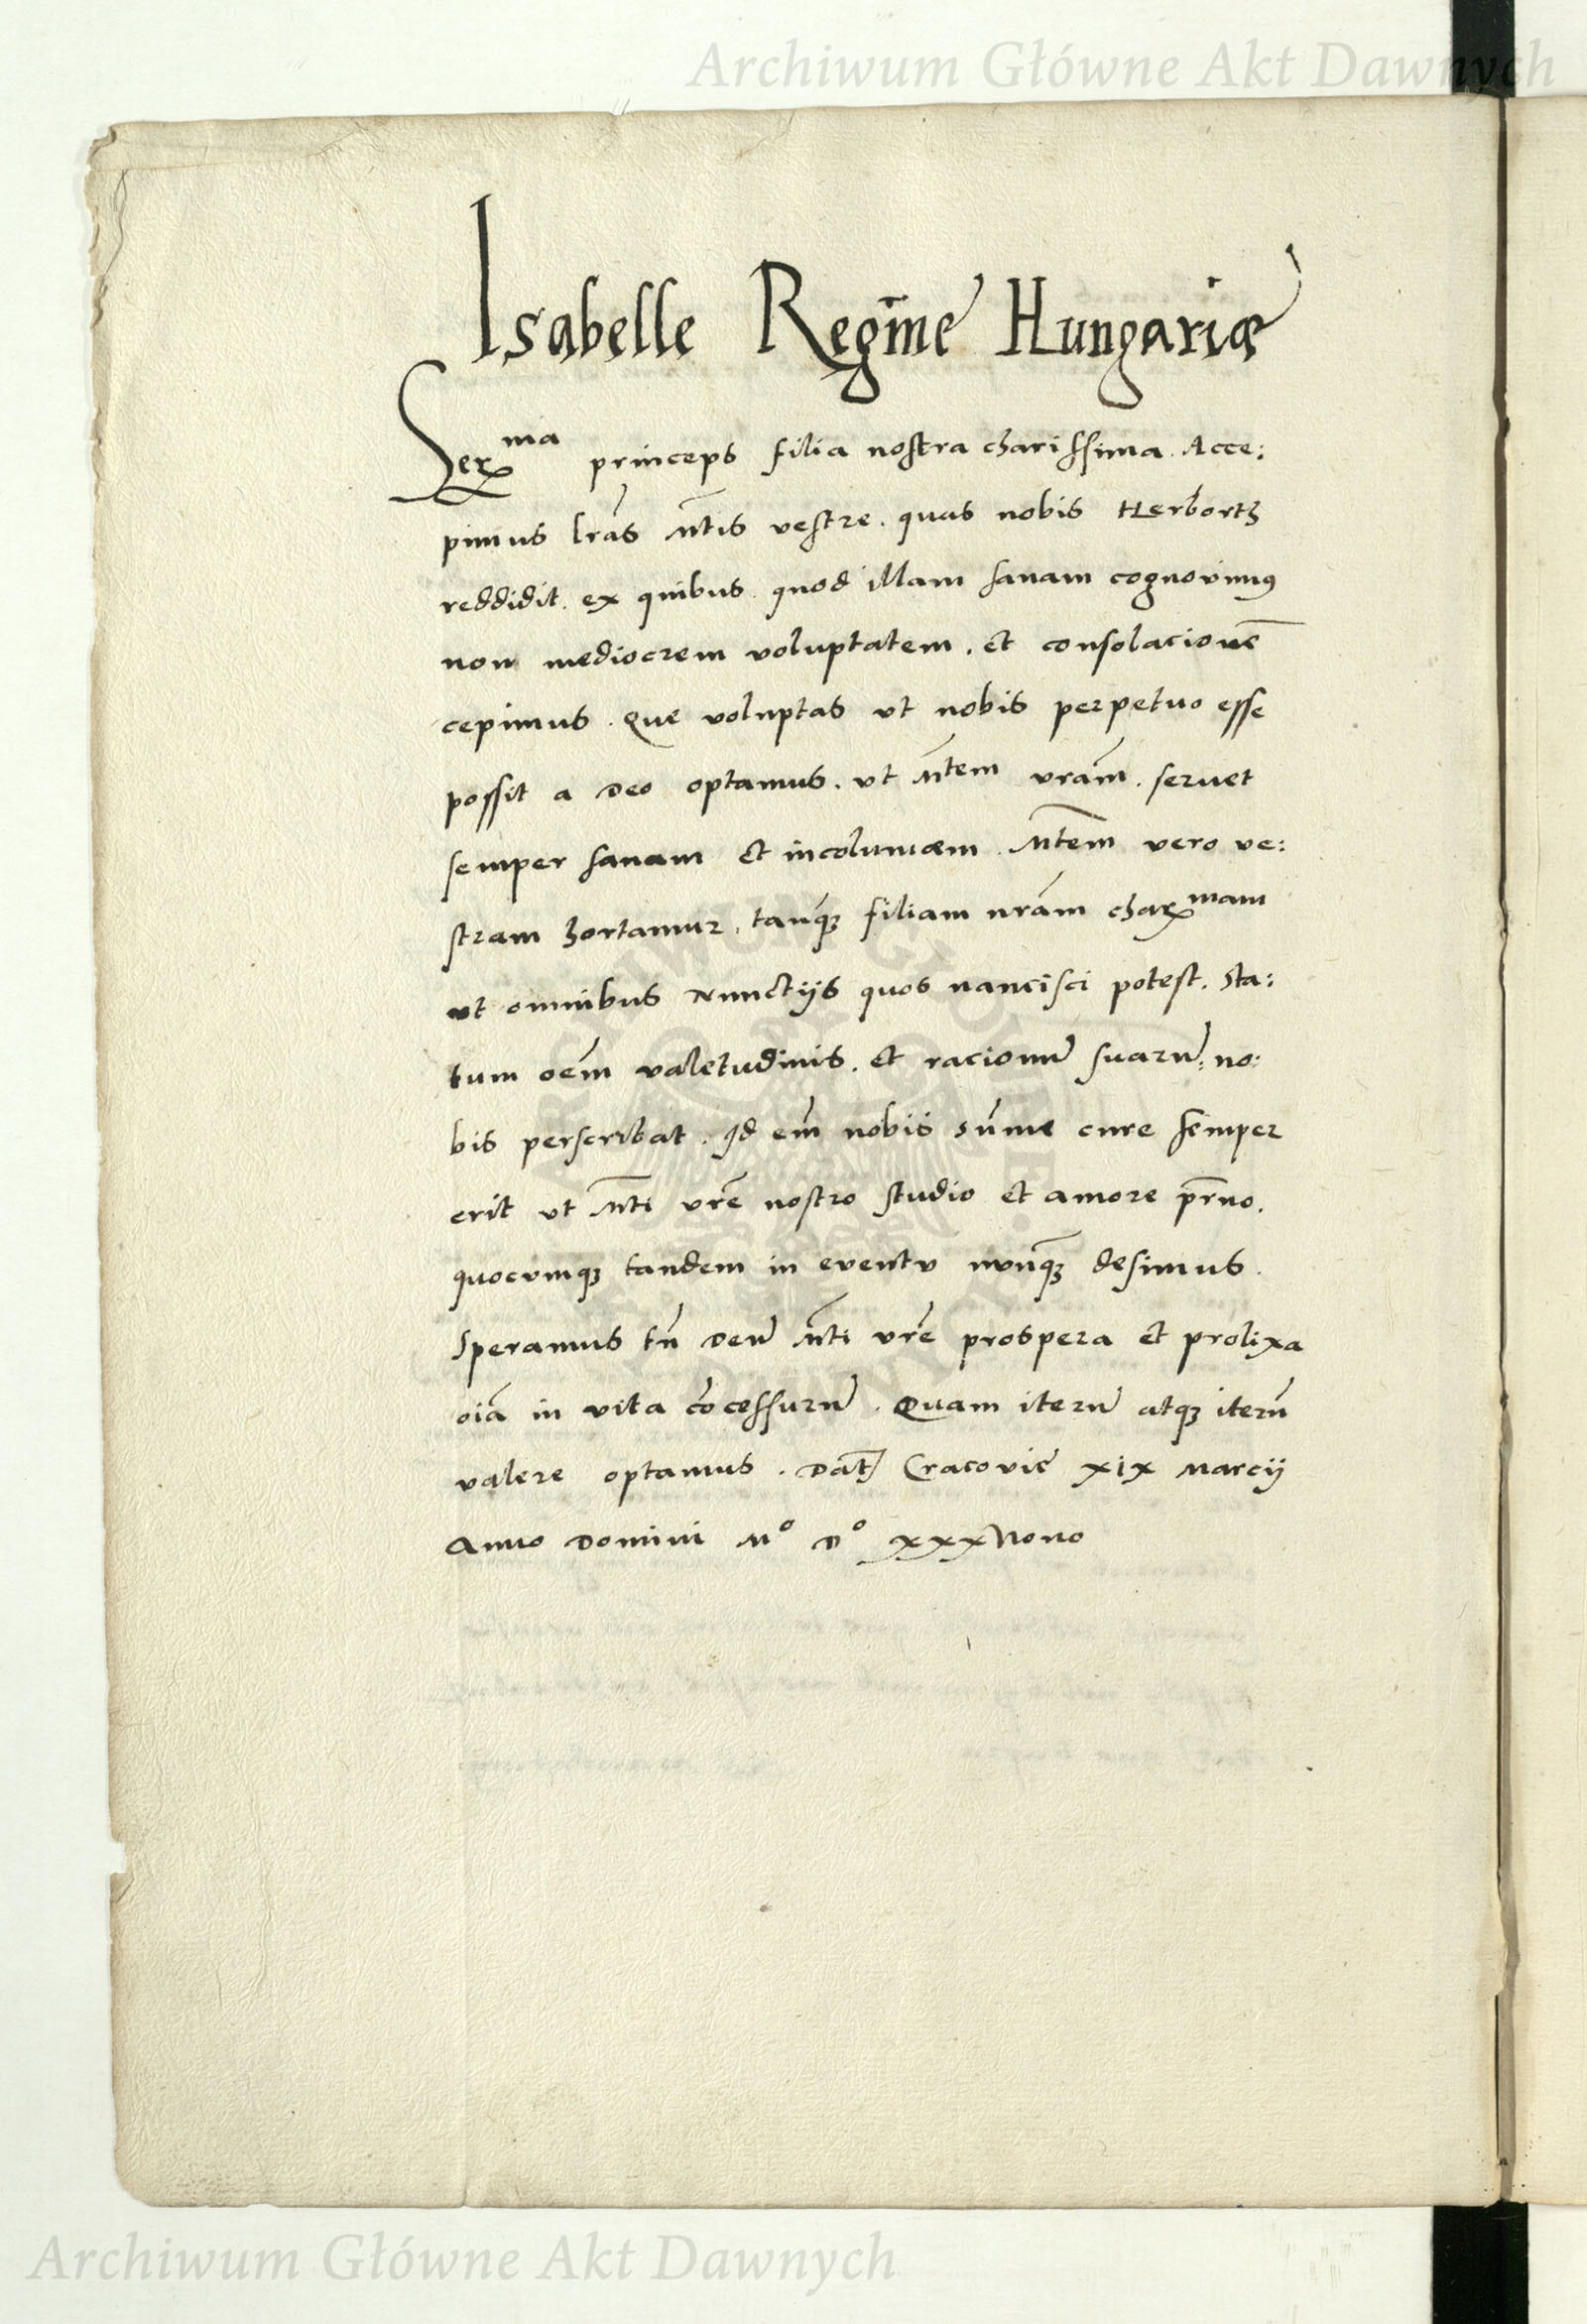 Archiwum Główne Akt Dawnych
Isabelle Regīne Hungariæ
Serma princeps filia nostra charissima. Acce:
pimus lr̃as Mt̃is vestre. quas nobis Herbortz
reddidit. ex quibus. quod illam sanam cognovimus
non mediocrem voluptatem. et consolacionē
cepimus. Que voluptas ut nobis perpetuo esse
possit a Deo optamus. ut Mt̃em vr̃am. servet
semper sanam et incolumem. Mt̃em vero ve:
stram hortamur. tanq̃ filiam nr̃am charmam
ut omnibus Nunctijs quos nancisci potest. sta:
tum oēm valetudinis. et racionū suarū. no:
bis perscribat. Id em̃ nobis sūme cure semper
erit ut Mt̃i vr̃e nostro studio et amore pr̃no.
quocumq; tandem in eventu nunq̃ desimus.
Speramus tñ Deū Mt̃i vr̃e prospera et prolixa
oīa in vita cōcessurū. Quam iterū atq; iterū
valere optamus. Dat̃ Cracovie xix Marcij
Anno Domini Mo Do xxxNono
Archiwum Główne Akt Dawnych